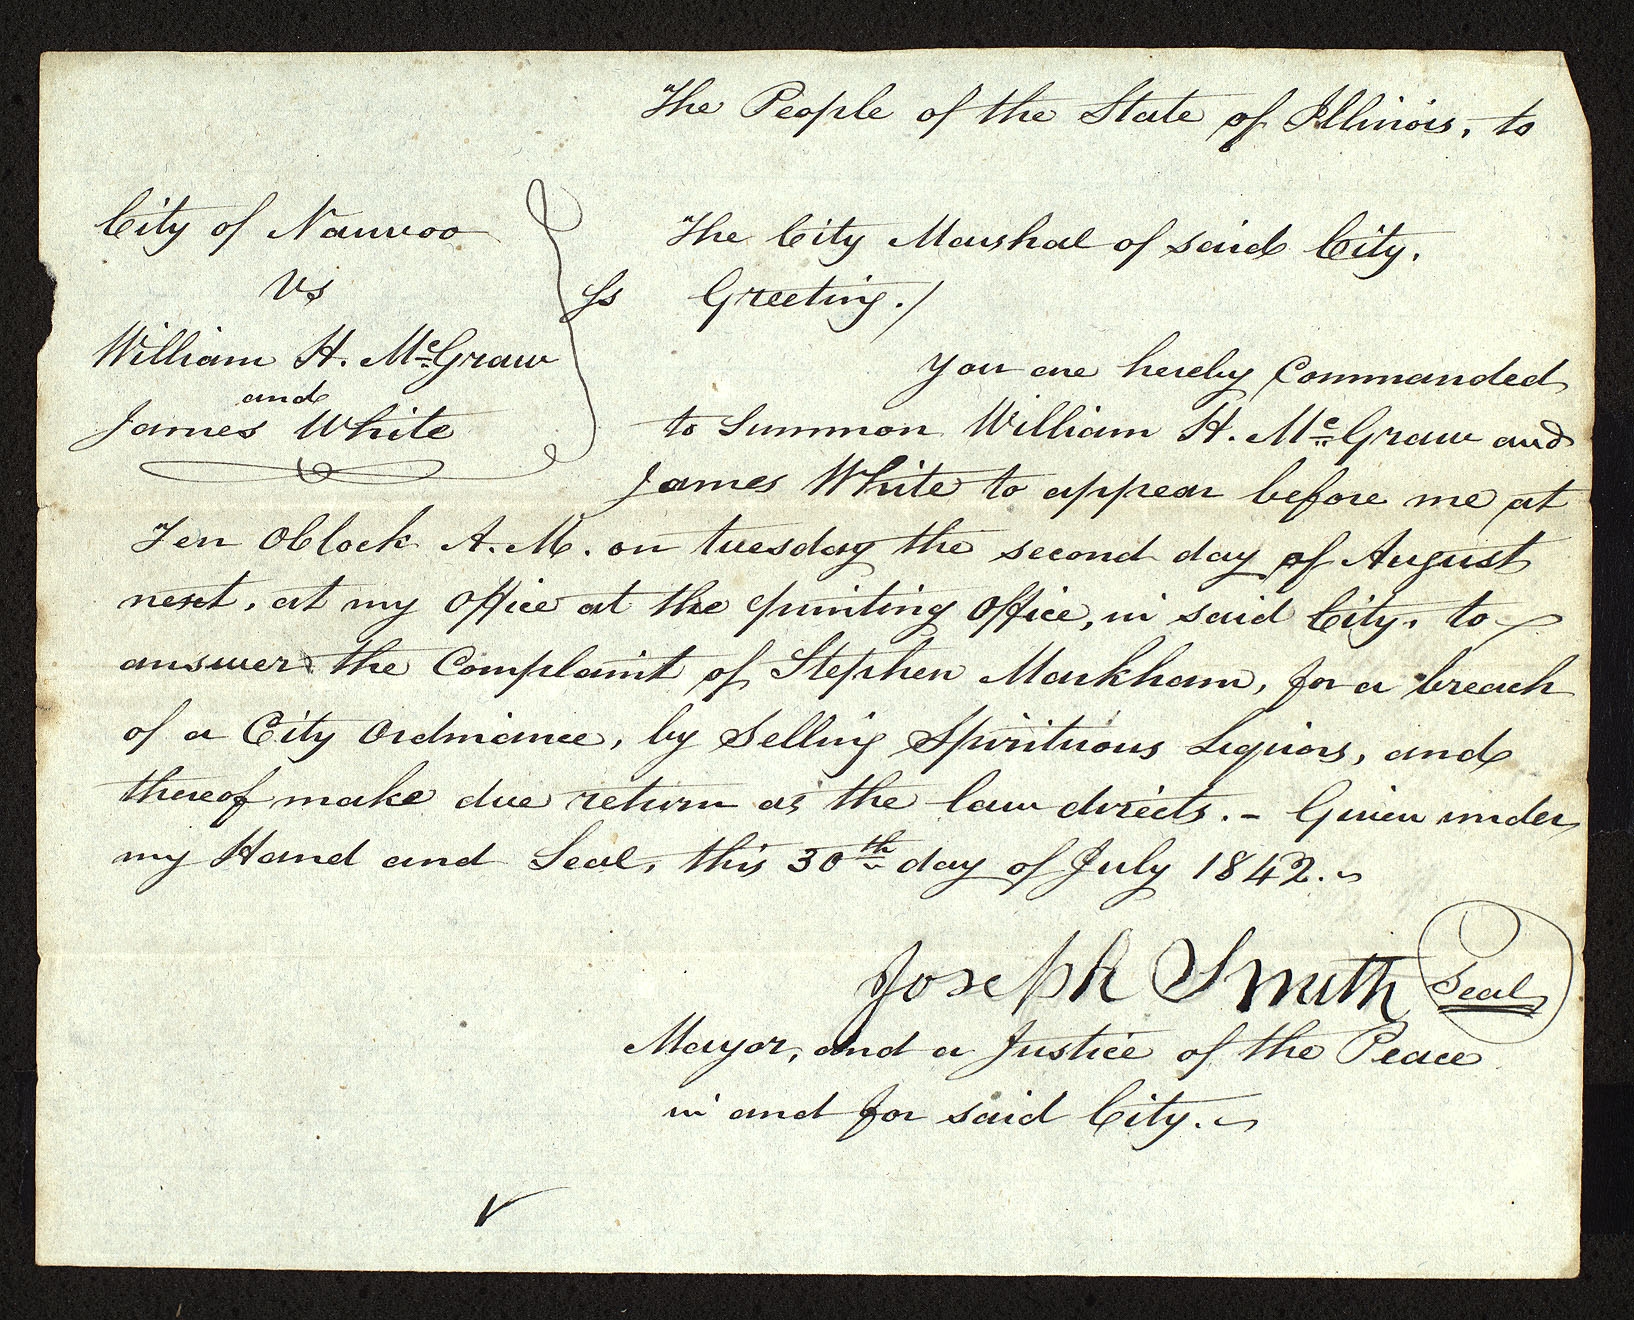 The People of the State of Illinois, to
City of Nauvoo
vs
William H. McGraw
and
James White
ss
The City Marshal of said City.
Greeting./
You are hereby Commanded
to Summon William H. McGraw and
James White to appear before me at
Ten OClock A.M. on tuesday the second day of August
next, at my Office at the printing Office, in said City, to
answer the Complaint of Stephen Markham, for a breach
of a City Ordinance, by Selling Spirituous Liquors, and
thereof make due return as the law directs.- Given under
my Hand and Seal, this 30th day of July 1842.
Joseph Smith Seal
Mayor, and a Justice of the Peace
in and for said City.